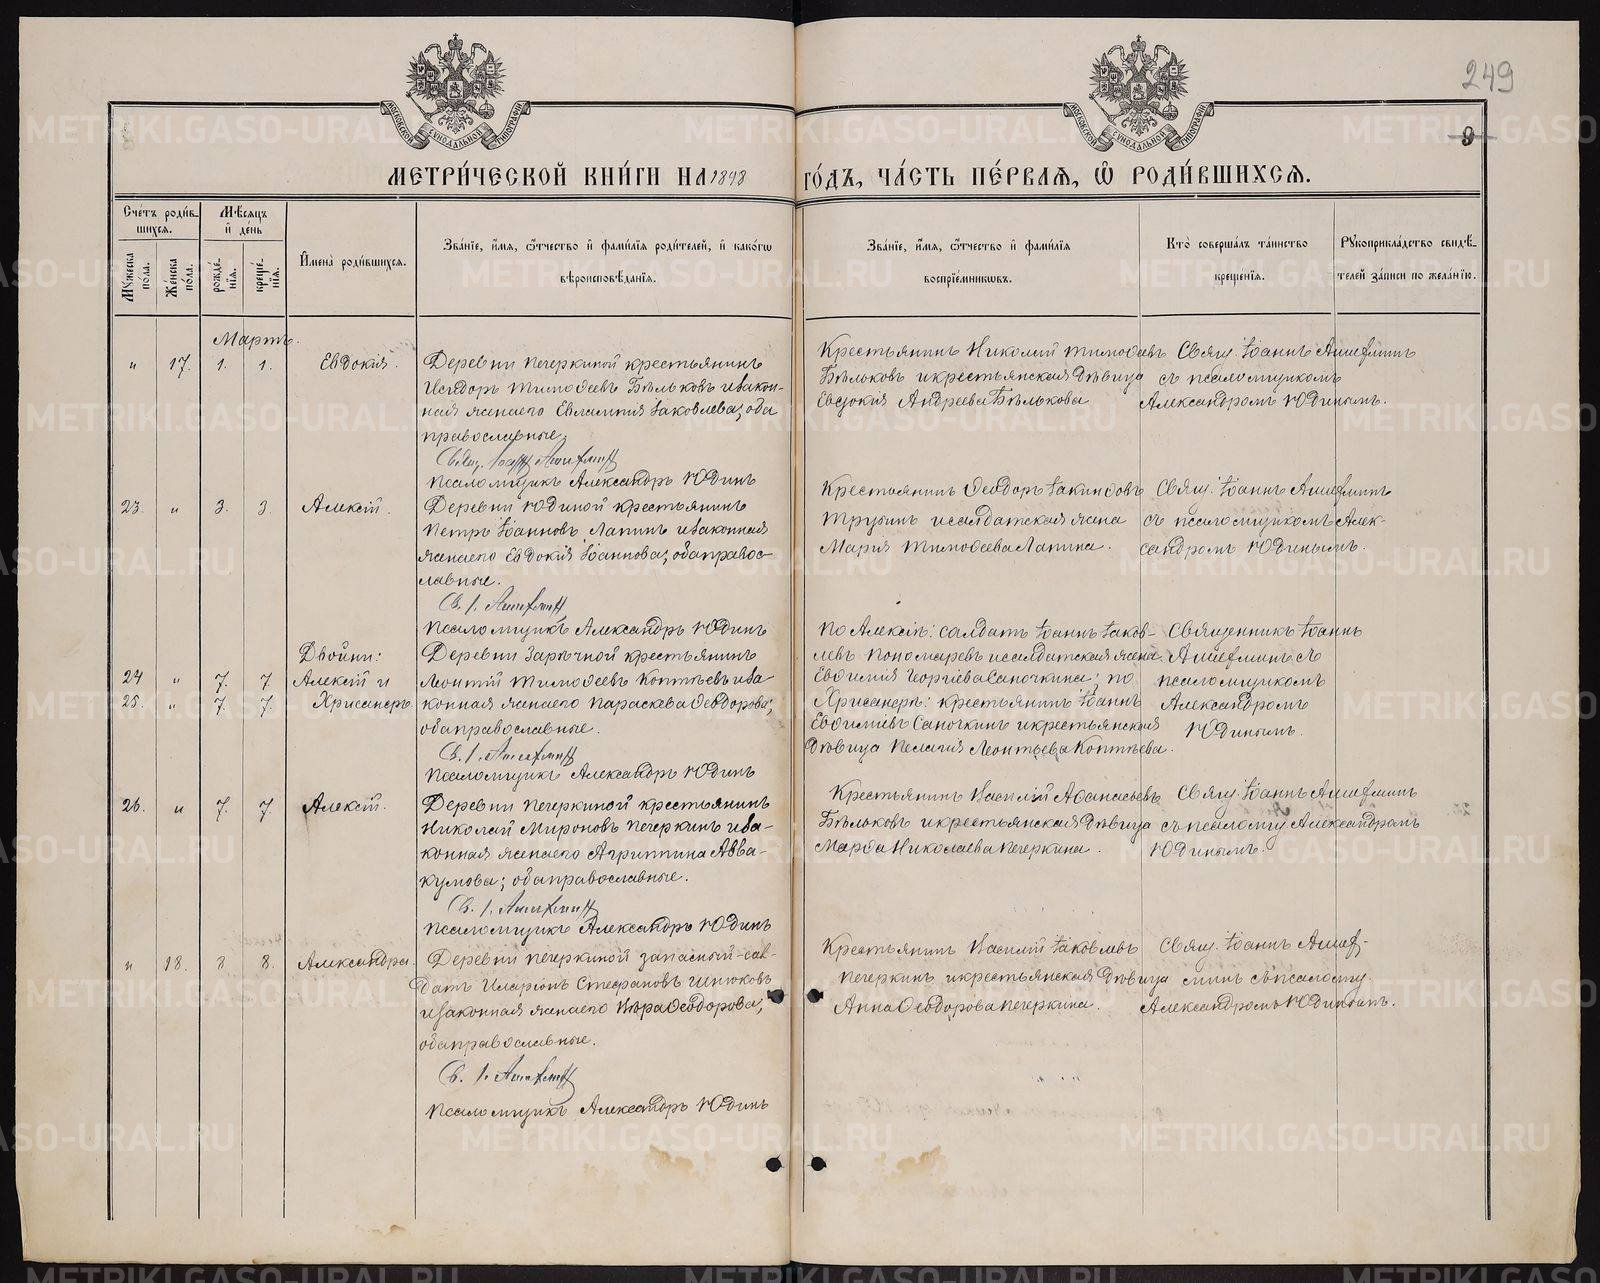 249
9
МЕТРИ́ЧЕСКОЙ КНИ́ГИ НА 1898 ГО́ДЪ, ЧА́СТЬ ПЕ́РВАЯ, Ѡ҆ РОДИ́ВШИХСЯ.
Сче́тъ роди́в-
шихся.
Мѣ́сяцъ
и҆ де́нь
Мꙋ́жеска по́ла.
Же́нска по́ла.
рожде́нїя.
креще́нїя.
И҆мена̀ роди́вшихся.
Зва́нїе, и҆́мя, ѻ҆́тчество и҆ фами́лїя роди́телей, и҆ како́гѡ
вѣроисповѣ́данїя.
Зва́нїе, и҆́мя, ѻ҆́тчество и҆ фами́лїя
воспрїе́мникѡвъ.
Кто̀ соверша́лъ та́инство
креще́нїя.
Рꙋкоприкла́дство свидѣ́-
телей за́писи по жела́нїю.
Мартъ.
" 17. 1. 1. Евдокія.
Деревни Печеркиной крестьянинъ
Исидоръ Тимоѳеевъ Бѣльковъ и закон-
ная жена его Евлампія Іаковлева; оба
православные.
Псаломщикъ Александръ Юдинъ
Крестьянинъ Николай Тимоѳеевъ
Бѣльковъ и крестьянская дѣвица
Евдокія Андреева Бѣлькова
Свящ. Іоаннъ
съ псаломщикомъ
Александромъ Юдинымъ.
23. " 3. 3. Алексій.
Деревни Юдиной крестьянинъ
Петръ Іоанновъ Лапинъ и законная
жена его Евдокія Іоаннова; оба правос-
лавные.
Псаломщикъ Александръ Юдинъ
Крестьянинъ Ѳеодоръ
Трубинъ и солдатская жена
Марія Тимоѳеева Лапина.
Свящ. Іоаннъ
съ псаломщикомъ Алек-
сандромъ Юдинымъ.
Двойни:
24 " 7. 7 Алексій и
25. " 7. 7. Хрисанѳъ
Деревни Заречной крестьянинъ
Леонтій Тимоѳеевъ Коптѣевъ и за-
конная жена его Параскева Ѳеодорова;
оба православные.
Псаломщикъ Александръ Юдинъ
По Алексіѣ: солдатъ Іоаннъ Іаков-
левъ Пономаревъ и солдатская жена
Евфимія Георгіева Саночкина; по
Хрисанѳѣ: крестьянинъ Іоаннъ
Евфиміевъ Саночкинъ и крестьянская
дѣвица Пелагія Леонтьева Коптѣева.
Священникъ Іоаннъ
съ
псаломщикомъ
Александромъ
Юдинымъ.
26. " 7. 7. Алексій.
Деревни Печеркиной крестьянинъ
Николай Мироновъ Печеркинъ и за-
конная жена его Агриппина Авва-
кумова; оба православные.
Псаломщикъ Александръ Юдинъ
Крестьянинъ Василій Аѳанасьевъ
Бѣльковъ и крестьянская дѣвица
Марѳа Николаева Печеркина.
Свящ. Іоаннъ
съ псаломщ Александромъ
Юдинымъ.
" 18. 8 8. Александра.
Деревни Печеркиной запасный сол-
датъ Иларіонъ Стефановъ
и законная жена его Вѣра Ѳеодорова;
оба православные.
Псаломщикъ Александръ Юдинъ
Крестьянинъ Василій Іаковлевъ
Печеркинъ и крестьянская дѣвица
Анна Ѳеодорова Печеркина.
Свящ. Іоаннъ
съ псаломщ.
Александромъ Юдинымъ.
METRIKI.GASO-URAL.RU